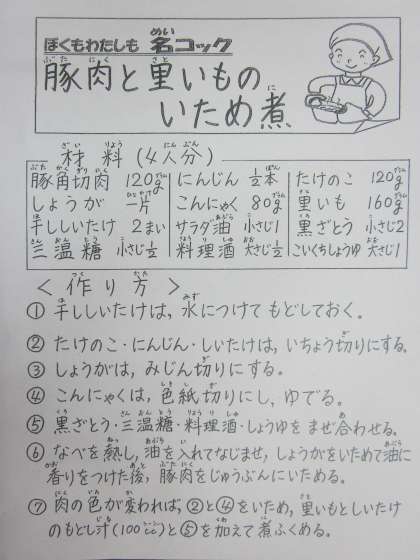 ぼくもわたしも 名コック
豚肉と里いもの
いため煮
材料(4人分)
豚角切肉 120g にんじん 1/2本 たけのこ 120g
しょうが 一片 こんにゃく 80g 里いも 160g
干ししいたけ 2まい サラダ油 小さじ1 黒ざとう 小さじ2
三温糖 小さじ1/2 料理酒 大さじ1/2 こいくちしょうゆ 大さじ1
<作り方>
① 干ししいたけは,水につけてもどしておく。
② たけのこ・にんじん・しいたけは,いちょう切りにする。
③ しょうがは,みじん切りにする。
④ こんにゃくは,色紙切りにし,ゆでる。
⑤ 黒ざとう・三温糖・料理酒・しょうゆをまぜ合わせる。
⑥ なべを熱し,油を入れてなじませ,しょうがをいためて油に
香りをつけた後,豚肉をじゅうぶんにいためる。
⑦ 肉の色が変われば,②と④をいため,里いもとしいたけ
のもどし汁(100cc)と⑤を加えて煮ふくめる。